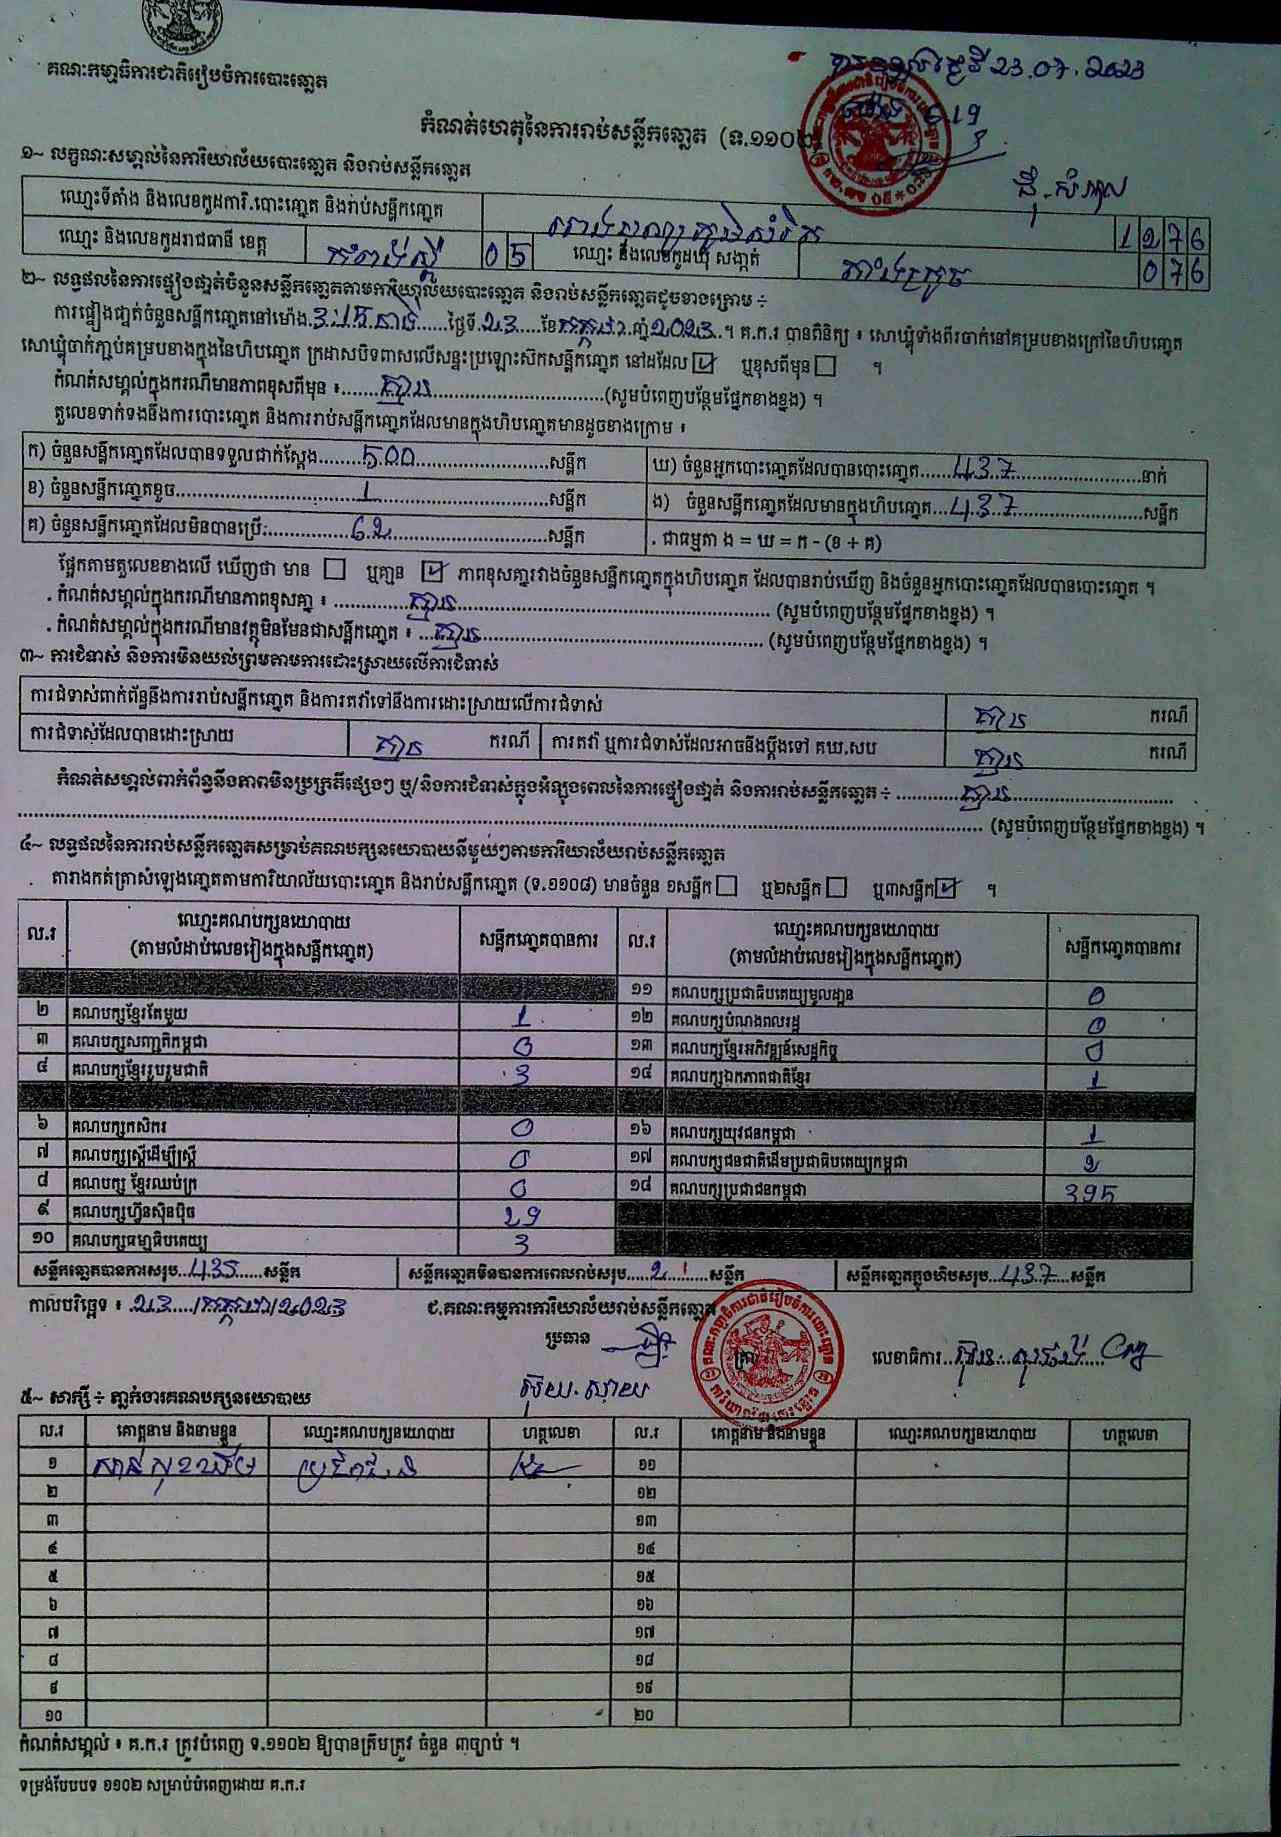 គណៈកម្មាធិការជាតិរៀបចំការបោះឆ្នោត
23.07.2023
កំណត់ហេតុនៃការរាប់សន្លឹកឆ្នោត (ទ.១១០២)
១~ លក្ខណៈសម្គាល់នៃការិយាល័យបោះឆ្នោត និងរាប់សន្លឹកឆ្នោត
ឈ្មោះទីតាំង និងលេខកូដការិ.បោះឆ្នោត និងរាប់សន្លឹកឆ្នោត 1 2 7 6
ឈ្មោះ និងលេខកូដរាជធានី ខេត្ត កំពង់ស្ពឺ 0 5 ឈ្មោះ និងលេខកូដឃុំ សង្កាត់ 0 7 6
២~ លទ្ធផលនៃការផ្ទៀងផ្ទាត់ចំនួនសន្លឹកឆ្នោតតាមការិយាល័យបោះឆ្នោត និងរាប់សន្លឹកឆ្នោតដូចខាងក្រោម ÷
ការផ្ទៀងផ្ទាត់ចំនួនសន្លឹកឆ្នោតនៅម៉ោង 3:15 នាទី ថ្ងៃទី 23 ខែ កក្កដា ឆ្នាំ 2023 ។ គ.ក.រ បានពិនិត្យ ៖ សោឃ្មុំទាំងពីរចាក់នៅគម្របខាងក្រៅនៃហិបឆ្នោត
សោឃ្មុំចាក់ភ្ជាប់គម្របខាងក្នុងនៃហិបឆ្នោត ក្រដាសបិទពាសលើសន្ទះប្រឡោះស៊កសន្លឹកឆ្នោត នៅដដែល ☑ ឬខុសពីមុន ☐ ។
កំណត់សម្គាល់ក្នុងករណីមានភាពខុសពីមុន ៖ គ្មាន (សូមបំពេញបន្ថែមផ្នែកខាងខ្នង) ។
តួលេខទាក់ទងនឹងការបោះឆ្នោត និងការរាប់សន្លឹកឆ្នោតដែលមានក្នុងហិបឆ្នោតមានដូចខាងក្រោម ៖
ក) ចំនួនសន្លឹកឆ្នោតដែលបានទទួលជាក់ស្តែង 500 សន្លឹក ឃ) ចំនួនអ្នកបោះឆ្នោតដែលបានបោះឆ្នោត 437 នាក់
ខ) ចំនួនសន្លឹកឆ្នោតខូច 1 សន្លឹក ង) ចំនួនសន្លឹកឆ្នោតដែលមានក្នុងហិបឆ្នោត 437 សន្លឹក
គ) ចំនួនសន្លឹកឆ្នោតដែលមិនបានប្រើ 62 សន្លឹក . ជាធម្មតា ង = ឃ = ក - (ខ + គ)
ផ្អែកតាមតួលេខខាងលើ ឃើញថា មាន ☐ ឬគ្មាន ☑ ភាពខុសគ្នារវាងចំនួនសន្លឹកឆ្នោតក្នុងហិបឆ្នោត ដែលបានរាប់ឃើញ និងចំនួនអ្នកបោះឆ្នោតដែលបានបោះឆ្នោត ។
. កំណត់សម្គាល់ក្នុងករណីមានភាពខុសគ្នា ៖ គ្មាន (សូមបំពេញបន្ថែមផ្នែកខាងខ្នង) ។
. កំណត់សម្គាល់ក្នុងករណីមានវត្ថុមិនមែនជាសន្លឹកឆ្នោត ៖ គ្មាន (សូមបំពេញបន្ថែមផ្នែកខាងខ្នង) ។
៣~ ការជំទាស់ និងការមិនយល់ព្រមតាមការដោះស្រាយលើការជំទាស់
ការជំទាស់ពាក់ព័ន្ធនឹងការរាប់សន្លឹកឆ្នោត និងការតវ៉ាទៅនឹងការដោះស្រាយលើការជំទាស់ គ្មាន ករណី
ការជំទាស់ដែលបានដោះស្រាយ គ្មាន ករណី ការតវ៉ា ឬការជំទាស់ដែលអាចនឹងប្តឹងទៅ គឃ.សប គ្មាន ករណី
កំណត់សម្គាល់ពាក់ព័ន្ធនឹងភាពមិនប្រក្រតីផ្សេងៗ ឬ/និងការជំទាស់ក្នុងអំឡុងពេលនៃការផ្ទៀងផ្ទាត់ និងការរាប់សន្លឹកឆ្នោត ÷ គ្មាន
(សូមបំពេញបន្ថែមផ្នែកខាងខ្នង) ។
៤~ លទ្ធផលនៃការរាប់សន្លឹកឆ្នោតសម្រាប់គណបក្សនយោបាយនីមួយៗតាមការិយាល័យរាប់សន្លឹកឆ្នោត
តារាងកត់ត្រាសំឡេងឆ្នោតតាមការិយាល័យបោះឆ្នោត និងរាប់សន្លឹកឆ្នោត (ទ.១១០៨) មានចំនួន ១សន្លឹក ☐ ឬ២សន្លឹក ☐ ឬ៣សន្លឹក ☑ ។
ល.រ ឈ្មោះគណបក្សនយោបាយ (តាមលំដាប់លេខរៀងក្នុងសន្លឹកឆ្នោត) សន្លឹកឆ្នោតបានការ ល.រ ឈ្មោះគណបក្សនយោបាយ (តាមលំដាប់លេខរៀងក្នុងសន្លឹកឆ្នោត) សន្លឹកឆ្នោតបានការ
១១ គណបក្សប្រជាធិបតេយ្យមូលដ្ឋាន 0
២ គណបក្សខ្មែរតែមួយ 1 ១២ គណបក្សបំណងពលរដ្ឋ 0
៣ គណបក្សសញ្ជាតិកម្ពុជា 0 ១៣ គណបក្សខ្មែរអភិវឌ្ឍន៍សេដ្ឋកិច្ច 0
៤ គណបក្សខ្មែររួបរួមជាតិ 3 ១៤ គណបក្សឯកភាពជាតិខ្មែរ 1
៦ គណបក្សកសិករ 0 ១៦ គណបក្សយុវជនកម្ពុជា 1
៧ គណបក្សស្ត្រីដើម្បីស្ត្រី 0 ១៧ គណបក្សជនជាតិដើមប្រជាធិបតេយ្យកម្ពុជា 2
៨ គណបក្ស ខ្មែរឈប់ក្រ 0 ១៨ គណបក្សប្រជាជនកម្ពុជា 395
៩ គណបក្សហ្វ៊ុនស៊ិនប៉ិច 29
១០ គណបក្សធម្មាធិបតេយ្យ 3
សន្លឹកឆ្នោតបានការសរុប 435 សន្លឹក សន្លឹកឆ្នោតមិនបានការពេលរាប់សរុប 2 សន្លឹក សន្លឹកឆ្នោតក្នុងហិបសរុប 437 សន្លឹក
កាលបរិច្ឆេទ ៖ 23/កក្កដា/2023 ជ.គណៈកម្មការការិយាល័យរាប់សន្លឹកឆ្នោត
ប្រធាន លេខាធិការ
៥~ សាក្សី ÷ ភ្នាក់ងារគណបក្សនយោបាយ
ល.រ គោត្តនាម និងនាមខ្លួន ឈ្មោះគណបក្សនយោបាយ ហត្ថលេខា ល.រ គោត្តនាម និងនាមខ្លួន ឈ្មោះគណបក្សនយោបាយ ហត្ថលេខា
១ ១១
២ ១២
៣ ១៣
៤ ១៤
៥ ១៥
៦ ១៦
៧ ១៧
៨ ១៨
៩ ១៩
១០ ២០
កំណត់សម្គាល់ ៖ គ.ក.រ ត្រូវបំពេញ ទ.១១០២ ឱ្យបានត្រឹមត្រូវ ចំនួន ៣ច្បាប់ ។
ទម្រង់បែបបទ ១១០២ សម្រាប់បំពេញដោយ គ.ក.រ